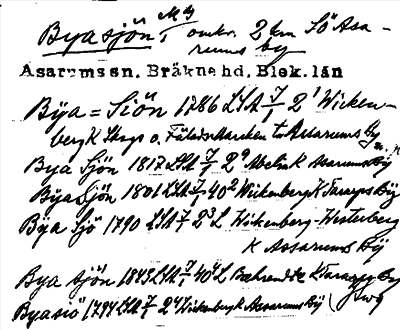 Byasjön, omkr. 2 km SÖ Asa-
rums by
Asarums sn. Bräkne hd. Blek. län
Bÿa=Siön 1786 LSA 7/1 2¹ Wicken-
berg K Skogs o. Fälads Marcken t. Assarums by
Bya Sjön 1817 LSA 7/1 2⁹ K Assarums By
Bÿa Sjön 1801 LSA 7/1 40² Wickenberg K Tararps Bÿ
Bÿa Sjö 1790 LSA 7/1 2³ L Wickenberg-Westerberg
K Assarums Bÿ
Bya sjön 1843 LSA 7/1 Tararps By
Byasiö 1794 LSA 7/1 2⁴ Wickenberg K Assarums Bÿ